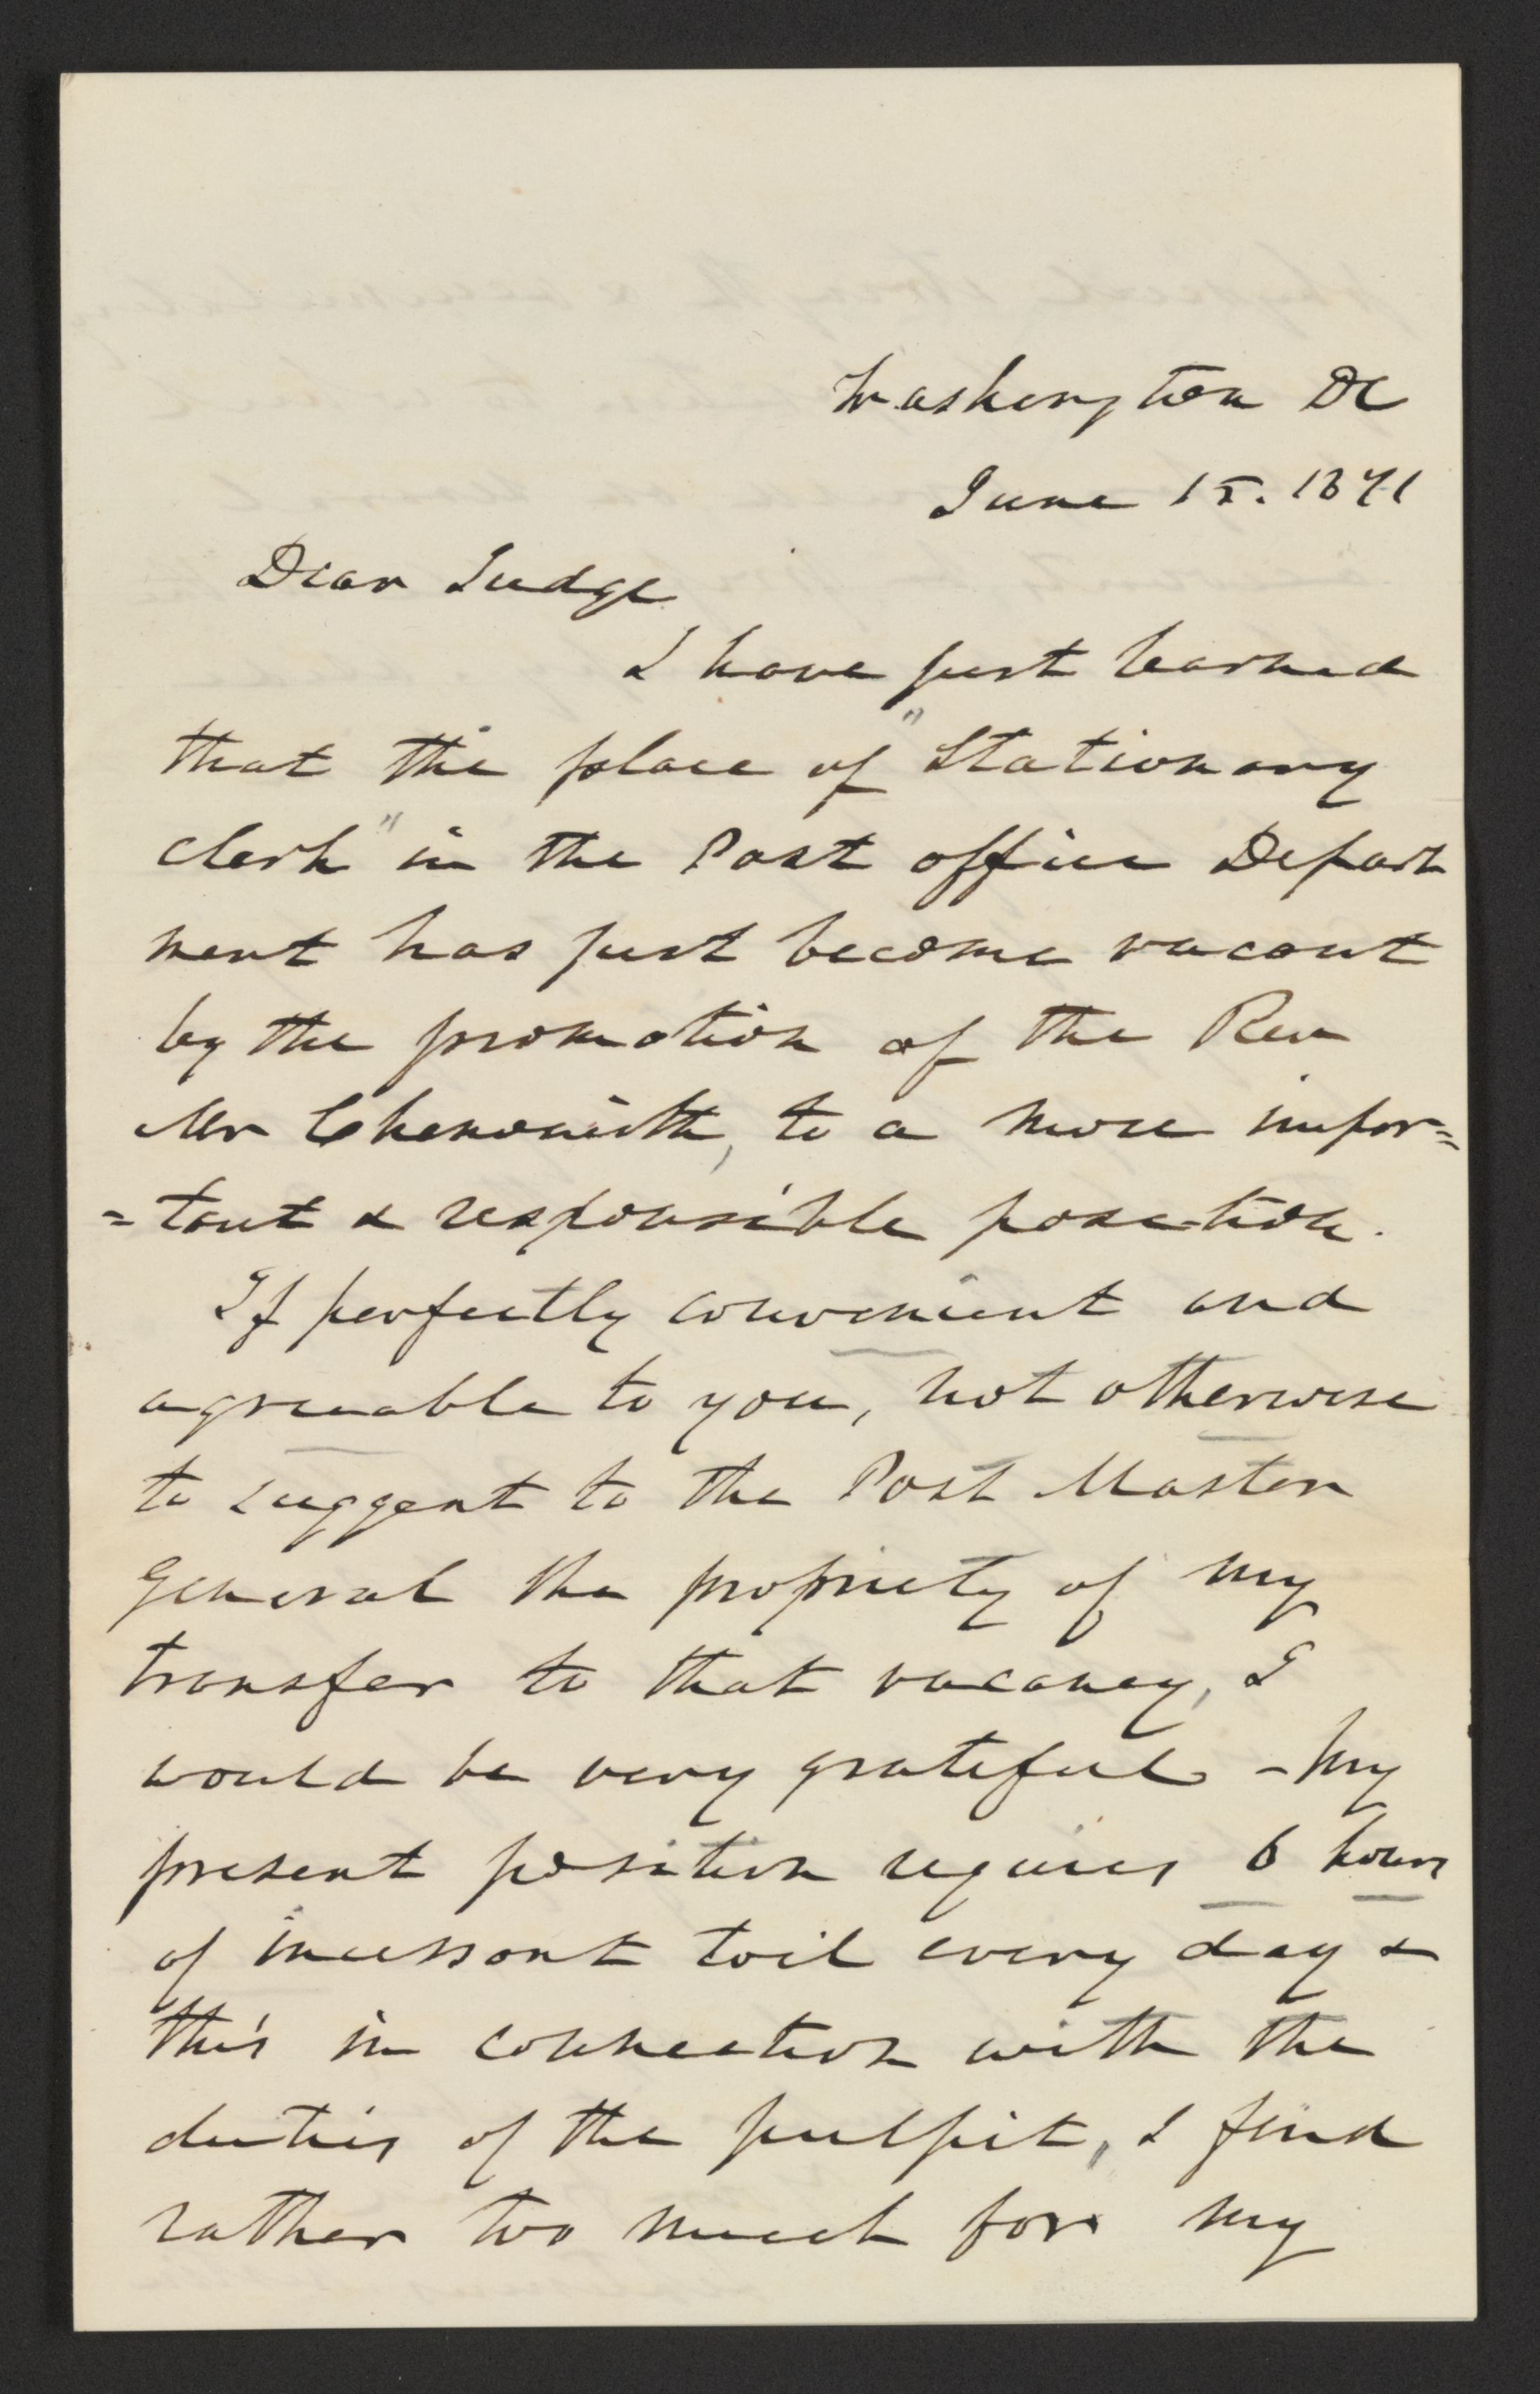 Washington DC
June 15. 1871
Dear Judge
I have just learned
that the place of "Stationary
clerk" in the Post office Depart
ment has just become vacant
by the promotion of the Rev
Mr Chenowith, to a more impor=
=tant & responsible position.
If perfectly convenient and
agreeable to you, not otherwise
to suggest to the Post Master
General the propriety of my
transfer to that vacancy, I
would be very grateful - My
present position requires 6 hours
of incessant toil every day &
this in connection with the
duties of the pulpit, I find
rather too much for my